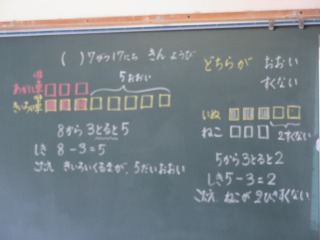 ( )7がつ17にち きん ようび
どちらが おおい
すくない
5おおい
あかい車
きいろの車
いぬ
ねこ
2すくない
8から3とると5
しき 8-3=5
こたえ きいろいくるまが、5だいおおい
5から3とると2
しき5-3=2
こたえ ねこが2ひきすくない